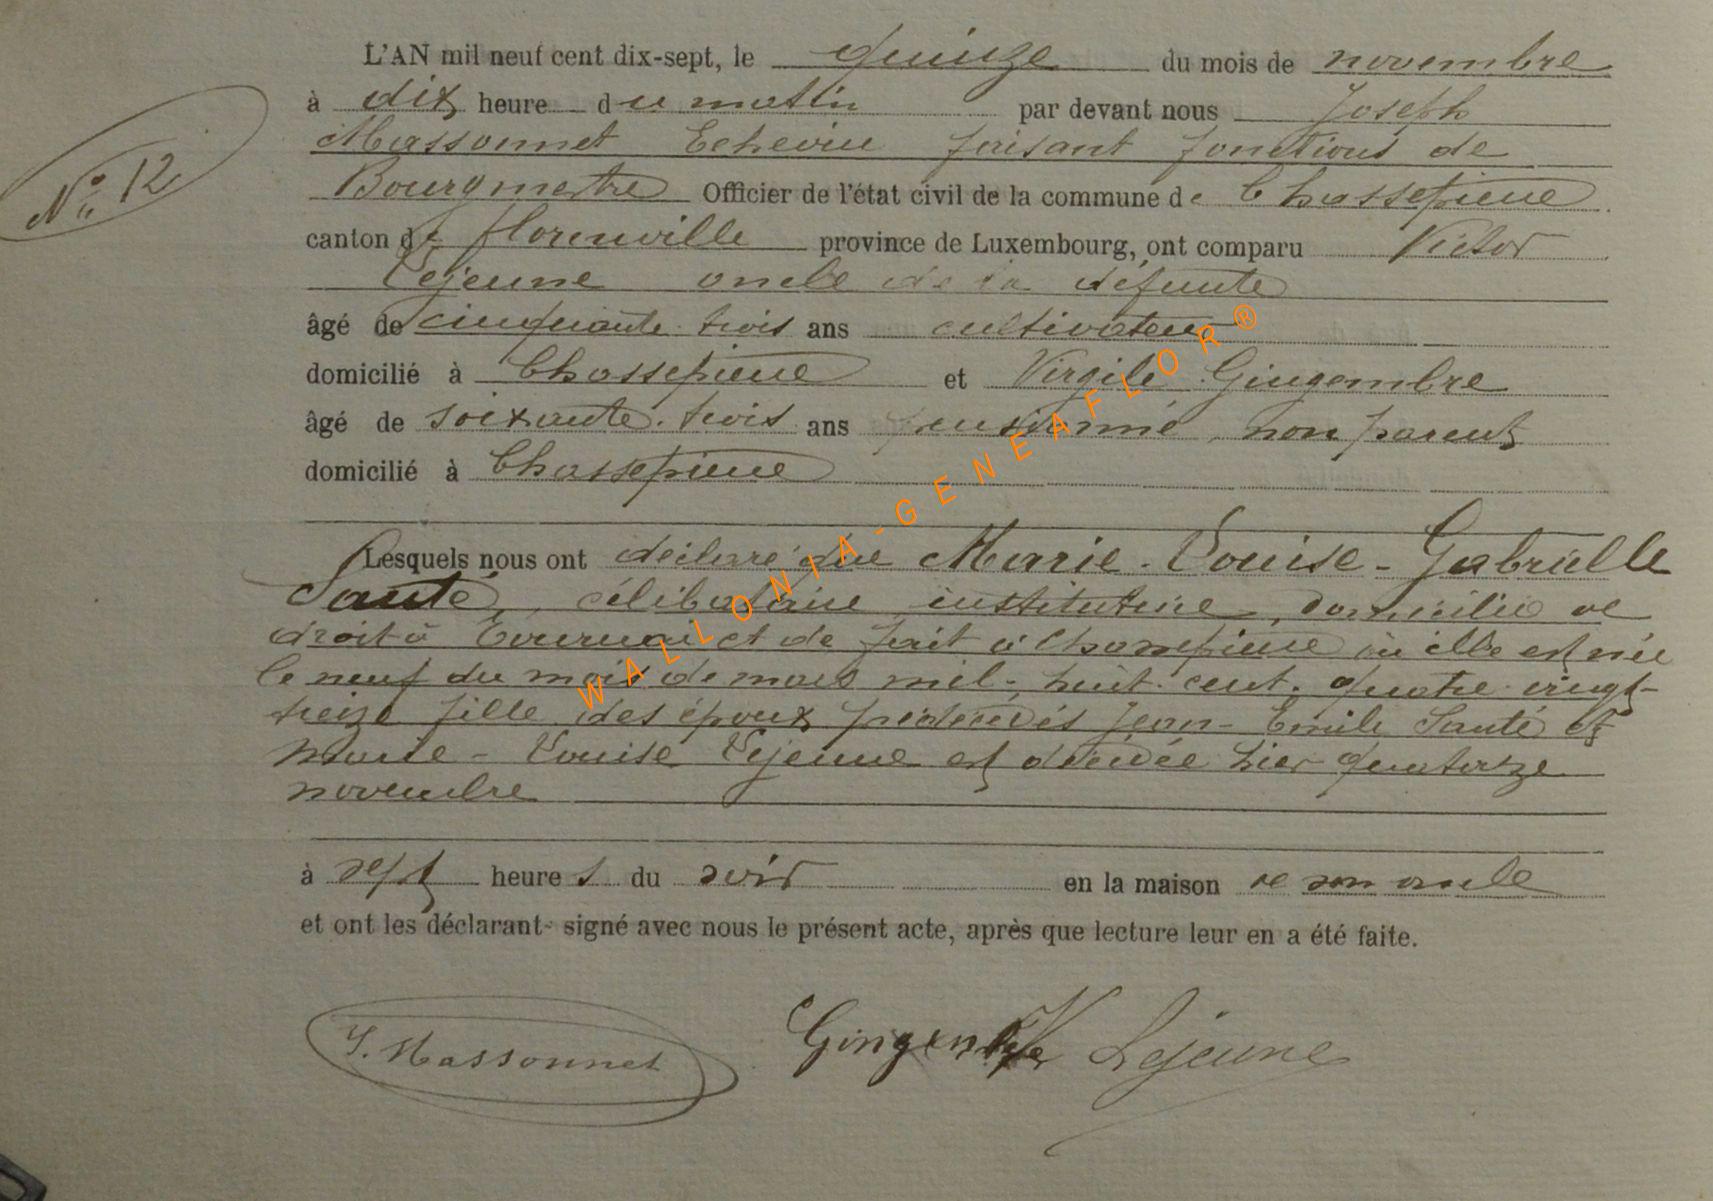 L'AN mil neuf cent dix-sept, le quinze du mois de novembre
à dix heure du matin par devant nous Joseph
Massonnet Echevin faisant fonctions de
N° 12
Bourgmestre Officier de l'état civil de la commune de Chassepierre
canton de florenville province de Luxembourg, ont comparu Victor
Lejeune oncle de la défunte
âgé de cinquante trois ans cultivateur
domicilié à Chassepierre et Virgile Gingembre
âgé de soixante-trois ans pensionné, non parent
domicilié à Chassepierre
Lesquels nous ont déclaré que Marie-Louise-Gabrielle
Santé, célibataire institutrice, domicilié de
droit à Tournai et de fait à Chassepierre où elle est née
le neuf du mois de mars mil-huit-cent-quatre-vingt-
treize fille des époux prédécédés Jean-Emile Santé et
Marie-Louise Lejeune est décédée hier quatorze
novembre
à sept heures du soir en la maison de son oncle
et ont les déclarant signé avec nous le présent acte, après que lecture leur en a été faite.
J. Massonnet Gingembre V Lejeune
WALLONIA-GENEAFLOR®